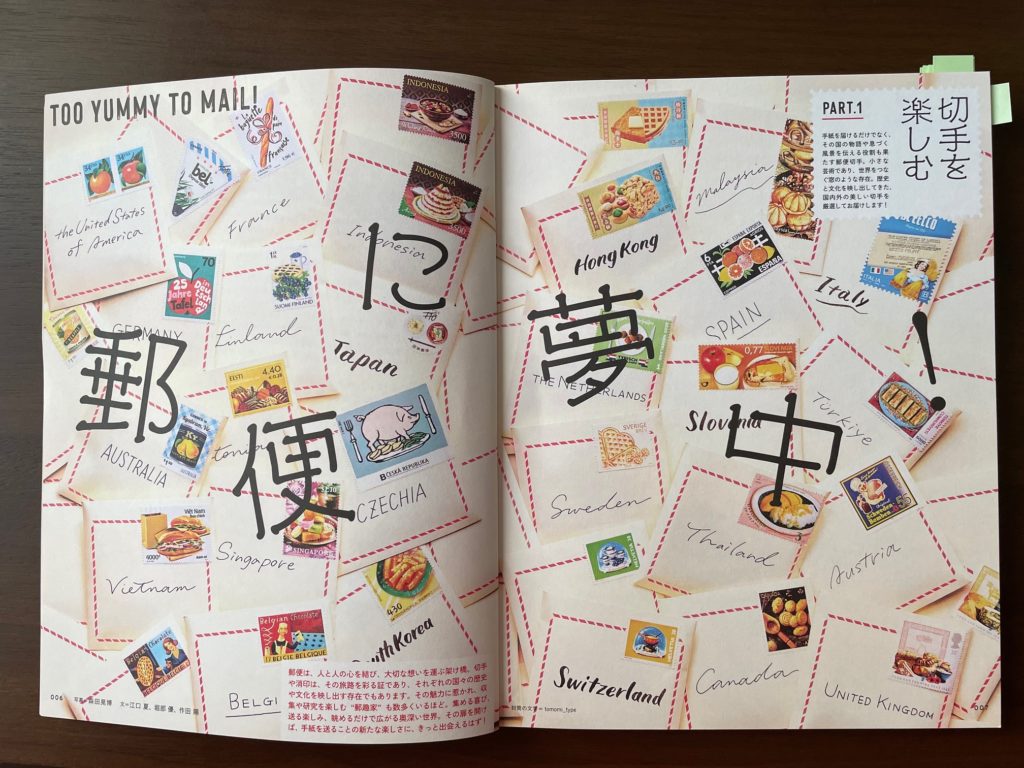 TOO YUMMY TO MAIL!
郵便に夢中!
PART.1
切手を
楽しむ
手紙を届けるだけでなく、
その国の物語や息づく
風景を伝える役割も果
たす郵便切手。小さな
芸術であり、世界をつな
ぐ窓のような存在。歴史
と文化を映し出してきた、
国内外の美しい切手を
厳選してお届けします!
the United States
of America
bel
France
INDONESIA
3500
INDONESIA
3500
Indonesia
70
25
Jahre
Tafel
in
Deutschland
GERMANY
SUOMI FINLAND
Finland
Japan
EESTI
4.40
AUSTRALIA
ČESKÁ REPUBLIKA
CZECHIA
Việt Nam
4000đ
Vietnam
SINGAPORE
Singapore
430
South Korea
Belgian Chocolate
Belgian Chocolate
BELGIE BELGIQUE
BELGI
郵便は、人と人の心を結び、大切な想いを運ぶ架け橋。切手
や消印は、その旅路を彩る証であり、それぞれの国々の歴史
や文化を映し出す存在でもあります。その魅力に惹かれ、収
集や研究を楽しむ“郵趣家”も数多くいるほど。集める喜び、
送る楽しみ、眺めるだけで広がる奥深い世界。その扉を開け
ば、手紙を送ることの新たな楽しさに、きっと出会えるはず!
006
文=江口 夏、堀部 優、作田
Hong Kong
Malaysia
ESPAÑA
SPAIN
ITALIA
Italy
THE NETHERLANDS
0,77
SLOVENIJA
Slovenia
Türkiye
SVERIGE
Sweden
Thailand
Schweden
Bomben
55
Austria
Switzerland
Canada
UNITED KINGDOM
tomomi_type
007